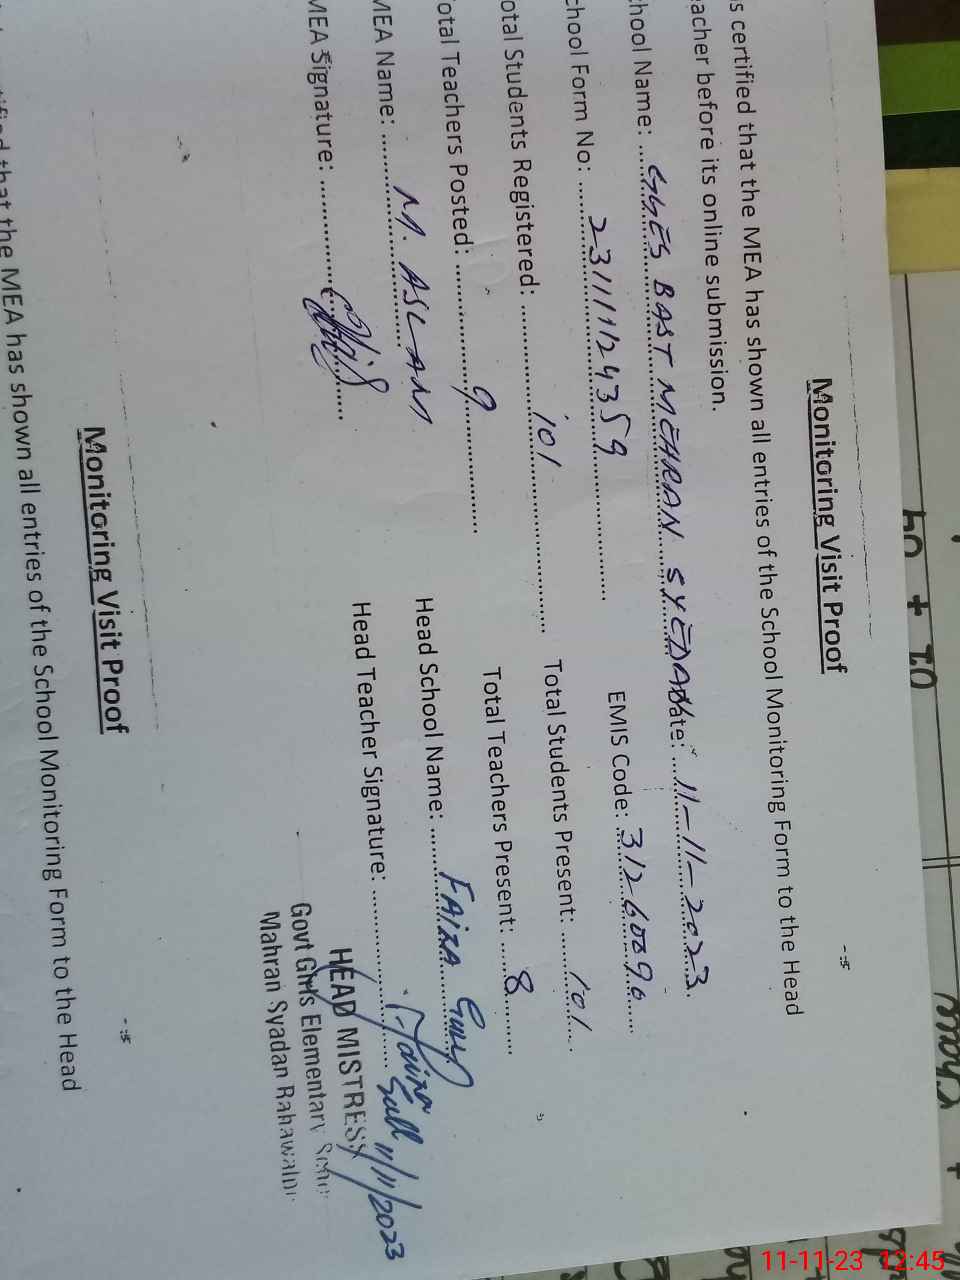 Monitoring Visit Proof
is certified that the MEA has shown all entries of the School Monitoring Form to the Head
eacher before its online submission.
chool Name: GGES BAST MEHRAN SYEDAN Date: 11-11-2023.
chool Form No: 231111124359 EMIS Code: 31260090
otal Students Registered: 101 Total Students Present: 101
otal Teachers Posted: 9 Total Teachers Present: 8
MEA Name: M. ASLAM Head School Name: FAIZA Gull
MEA Signature: Head Teacher Signature: Faiza Gull 11/11/2023
HEAD MISTRESS
Govt Girls Elementary
Mahran Syadan Bahawalpu
Monitoring Visit Proof
tified that the MEA has shown all entries of the School Monitoring Form to the Head
11-11-23 12:45